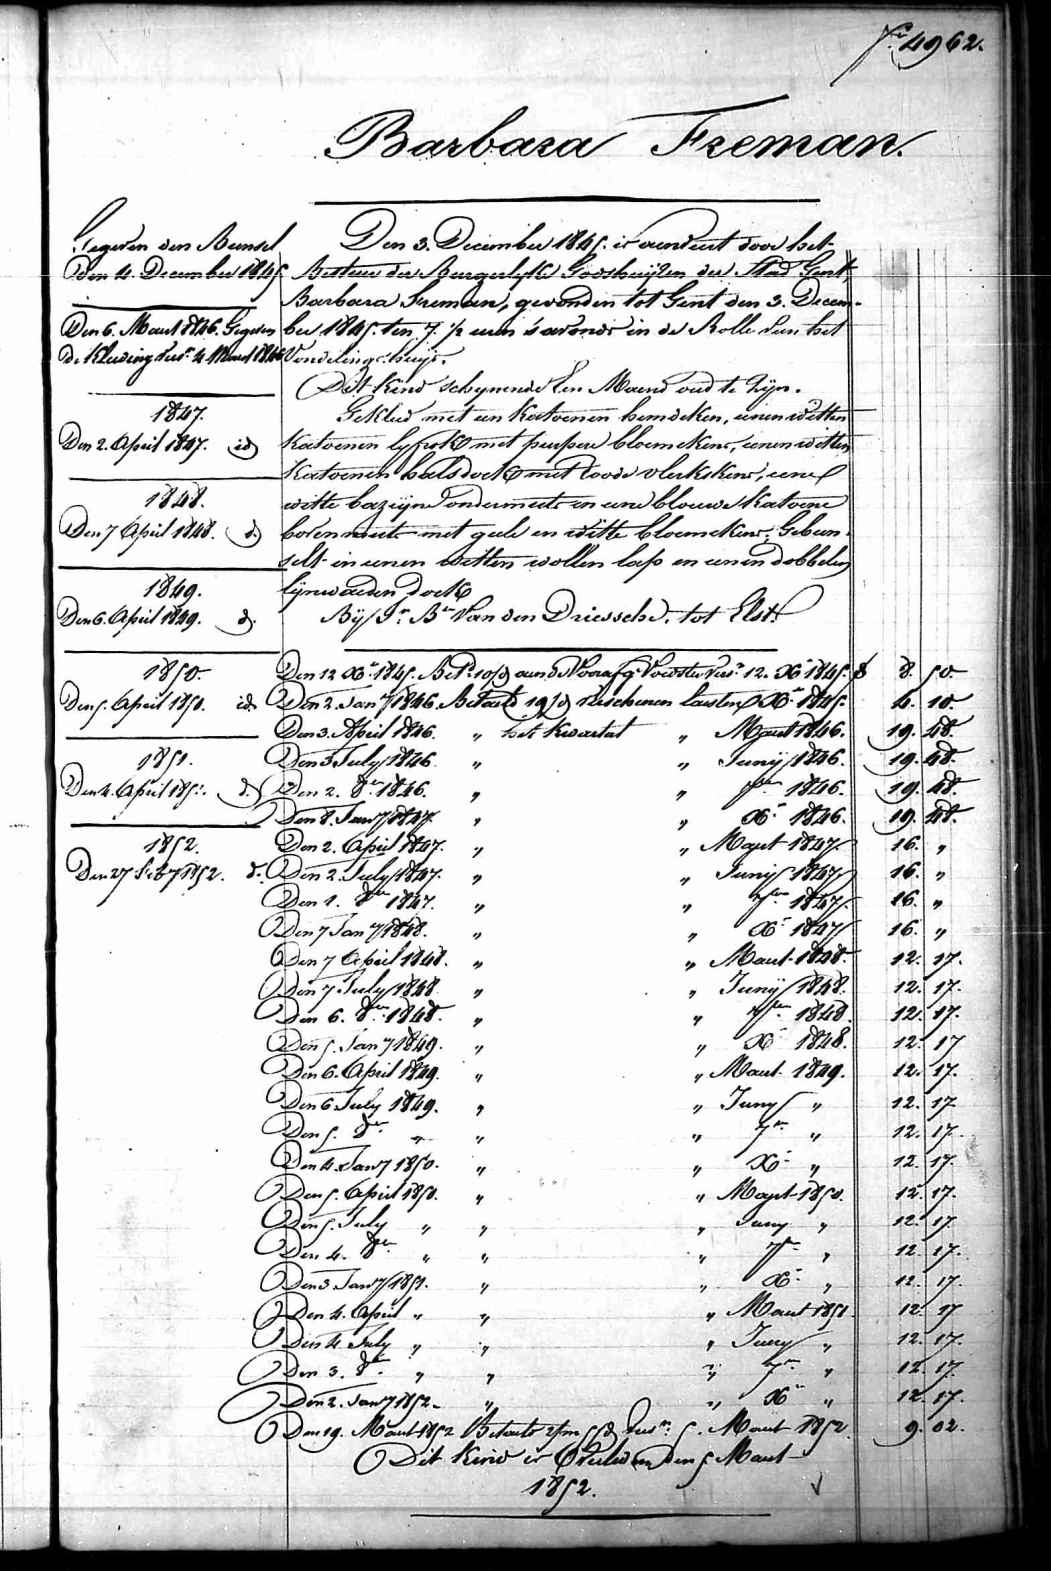 N.º 4962.
Barbara Freman.
Gegeven den Bunsel
Den 4. December 1845.
Den 6. Maart 1846. Gegeven
de Kleeding vers. 4 Maart 1846
1847.
Den 2. April 1847. id
1848.
Den 7 April 1848. d.
1849.
Den 6. April 1849. d.
1850.
Den 5. April 1850. id.
1851.
Den 4. April 1851. d.
1852.
Den 27 Feb.y 1852. d.
Den 3. December 1845. is aenveert door het
Bestuer der Burgerlyke Godshuijzen der Stad Gent,
Barbara Freman, gevonden tot Gent den 3. Decem-
ber 1845. ten 7 ½ uren 's avonds in de Rolle van het
Vondelingshuys.
Dit Kind schynende Een Maend oud te Zyn.
Gekleed met een Katoenen hemdeken, eenen witten
Katoenen lyfrok met purpere bloemekens, eenen witten
Katoenen halsdoek met roode vlekskens, eene
witte bazijne ondermuts en eene blouwe Katoene
bovenmuts met geele en witte bloemekens, Gebun-
selt in eenen witten wollen lap en eenen dobbelen
lynwaeden doek
By J.n B.te Van den Driessche, tot Elst.
Den 12 X.r 1845. Bet.d 10/d aen de Voorafg. Voedster vers. 12. X.r 1845. f 8. 50.
Den 2. Jan.y 1846. Betaeld 19/d verschenen laesten X.r 1845. 4. 10
Den 3. April 1846. " het Kwartael " Maart 1846. 19. 48.
Den 3 July 1846 " " Junij 1846. 19. 48.
Den 2. 8.er 1846. " " 7.ber 1846. 19. 48.
Den 8. Jan.y 1847. " " X.r 1846. 19. 48.
Den 2. April 1847. " " Maart 1847 16. "
Den 2. July 1847. " " Junij 1847 16. "
Den 1. 8.er 1847. " " 7.ber 1847 16. "
Den 7 Jan.y 1848. " " X.r 1847 16. "
Den 7 April 1848. " " Maart 1848. 12. 17.
Den 7 July 1848 " " Junij 1848. 12. 17.
Den 6. 8.er 1848. " " 7.ber 1848 12. 17.
Den 5. Jan.y 1849. " " X.r 1848. 12. 17
Den 6. April 1849. " " Maart 1849. 12. 17.
Den 6 July 1849. " " Juny " 12. 17
Den 5. 8.er " " " 7.er " 12. 17
Den 4. Jan.y 1850. " " X.r " 12. 17.
Den 5. April 1850. " " Maart 1850. 12. 17.
Den 5. July " " " Juny " 12. 17
Den 4. 8.er " " " 7.er " 12. 17.
Den 3 Jan.y 1851. " " X.r " 12. 17
Den 4. April " " " Maart 1851. 12. 17
Den 4. July " " " Juny " 12. 17.
Den 3. 8.er " " " 7.er " 12. 17.
Den 2. Jan.y 1852. " " X.r " 12. 17.
Den 19. Maart 1852 Betaeld 2/m 5/d vers. 5. Maart 1852. 9. 02.
Dit Kind is Overleden den 5 Maart
1852.